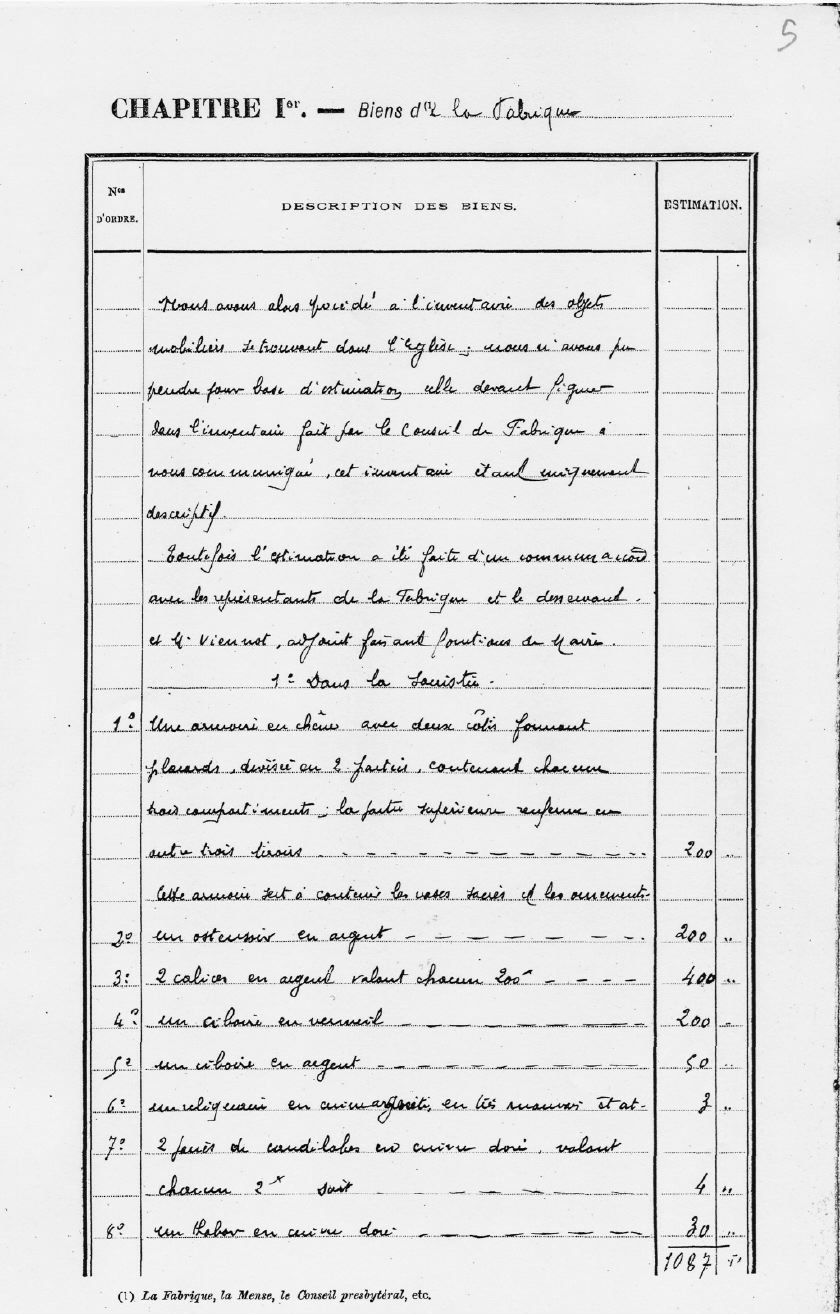 5
CHAPITRE Ier. — Biens d(1)e la Fabrique
Nos D'ORDRE.
DESCRIPTION DES BIENS.
ESTIMATION.
Nous avons alors procédé à l'inventaire des objets
mobiliers se trouvant dans l'Eglise ; nous n'avons pu
prendre pour base d'estimation, celle devant figurer
dans l'inventaire fait par le Conseil de Fabrique à
nous communiqué, cet inventaire étant uniquement
descriptif.
Toutefois l'estimation a été faite d'un commun accord
avec les représentants de la Fabrique et le desservant.
et Mr Viennot, adjoint faisant fonctions de Maire.
1o Dans la Sacristie.
1o Une armoire en chêne avec deux côtés formant
placards, divisée en 2 parties, contenant chacune
trois compartiments ; la partie supérieure renferme en
outre trois tiroirs 200 "
Cette armoire sert à contenir les vases sacrés et les ornements.
2o un ostensoir en argent 200 "
3o 2 calices en argent valant chacun 200f 400 "
4o un ciboire en vermeil 200 "
5o un ciboire en argent 50 "
6o un reliquaire en cuivre argenté, en très mauvais état. 3 "
7o 2 paires de candélabres en cuivre doré, valant
chacun 2f soit 4 "
8o un thabor en cuivre doré 30 "
1087 "
(1) La Fabrique, la Mense, le Conseil presbytéral, etc.